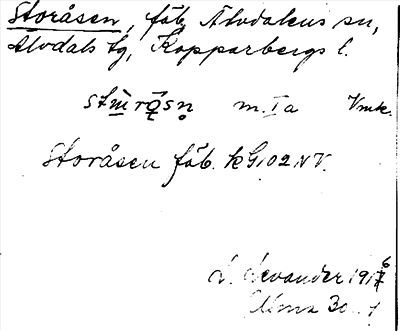 Storåsen, fäb, Älvdalens sn,
Älvdals tg, Kopparbergs l.
m. I a Vmk.
Storåsen fäb. kG, 02 NV.
L. Levander 1916
30